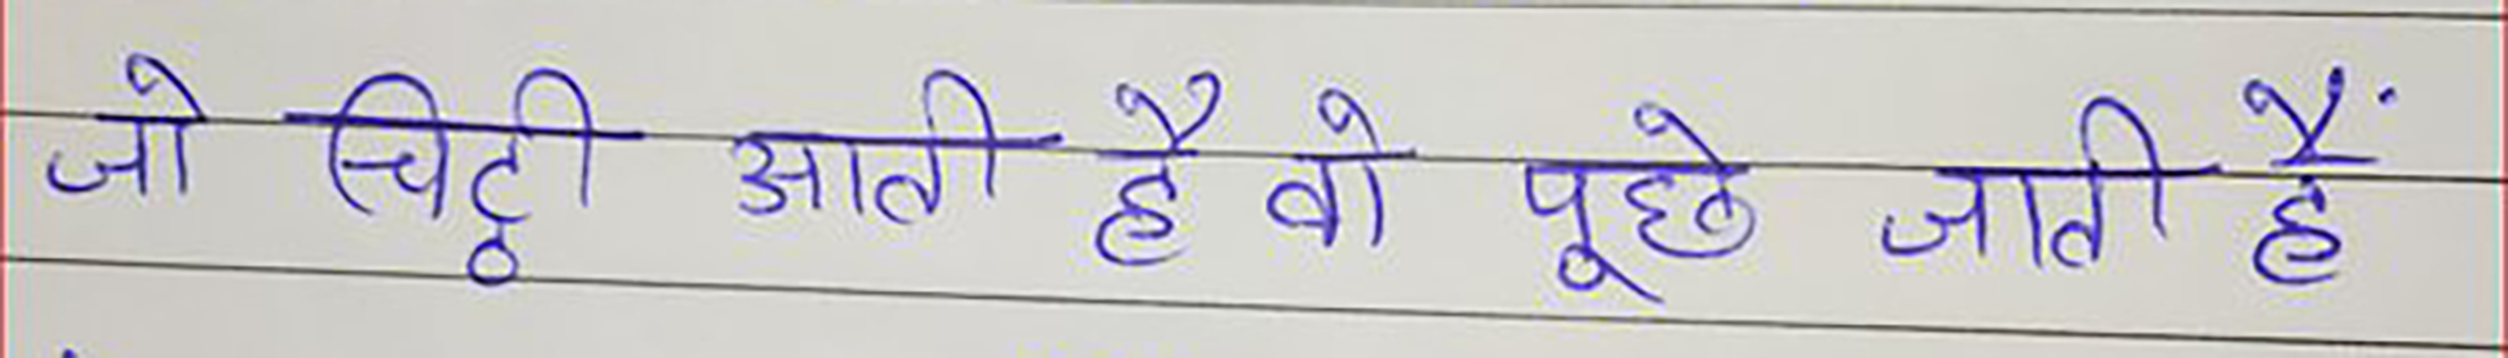 जो चिट्ठी आती है वो पूछे जाती हैं